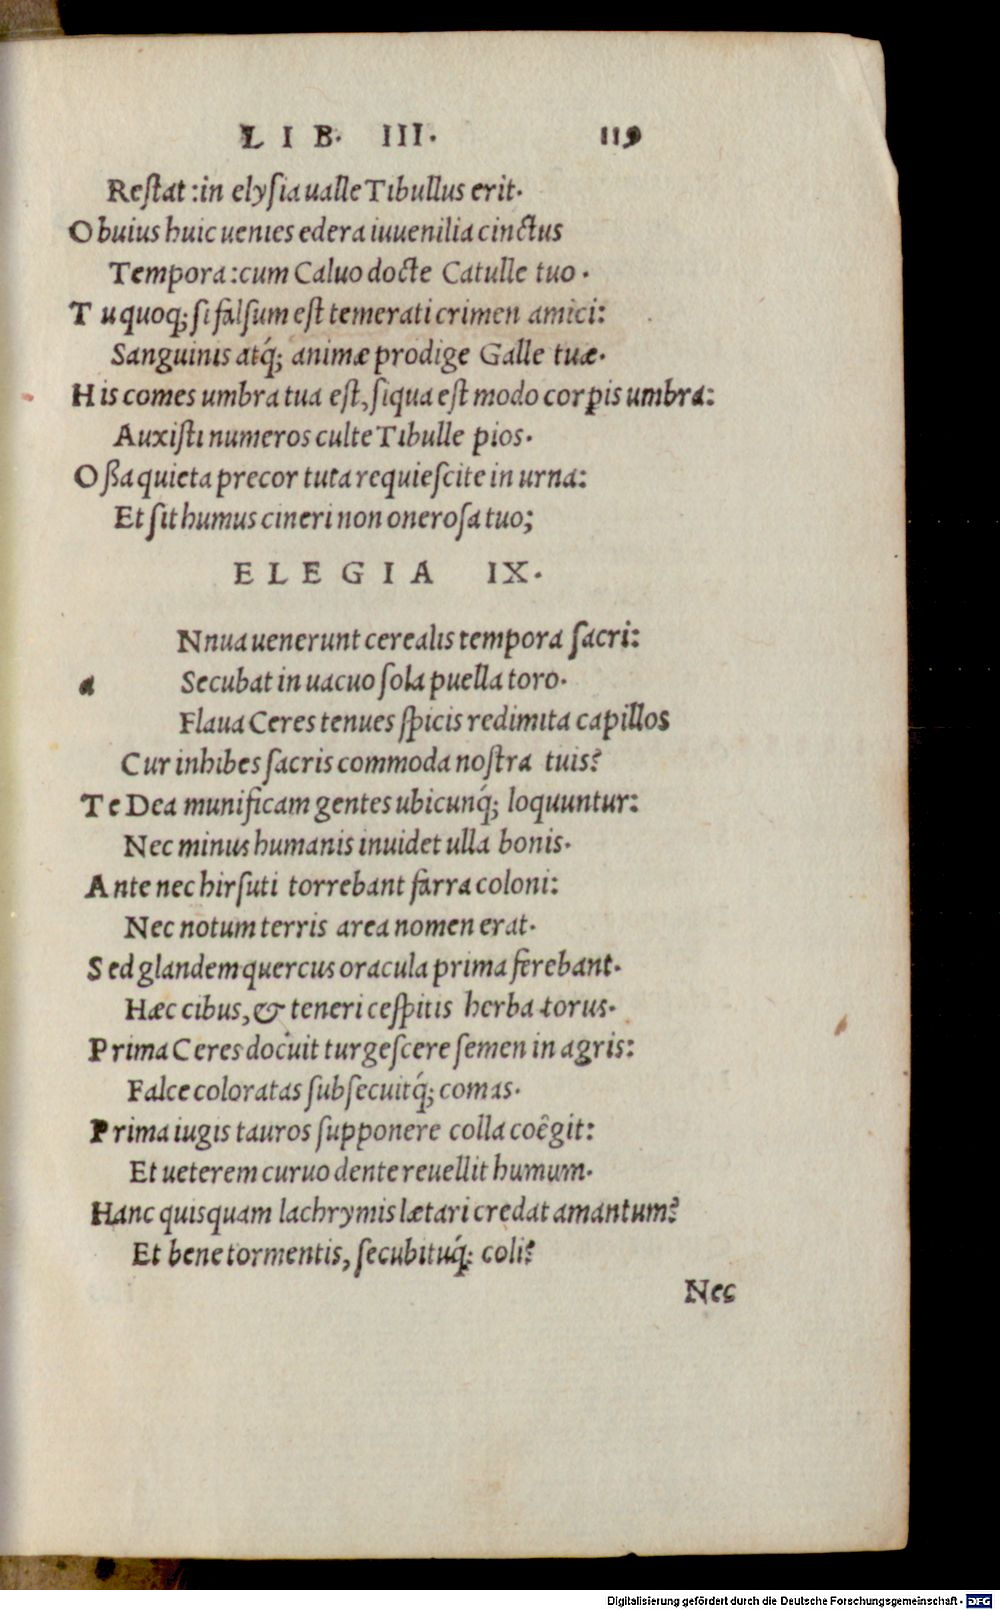 LIB. III. 119
Restat :in elysia ualle Tibullus erit.
Obuius huic uenies edera iuuenilia cinctus
Tempora :cum Caluo docte Catulle tuo .
Tu quoq; si falsum est temerati crimen amici:
Sanguinis atq́; animæ prodige Galle tuæ.
His comes umbra tua est, siqua est modo corꝑis umbra:
Auxisti numeros culte Tibulle pios.
Oßa quieta precor tuta requiescite in urna:
Et sit humus cineri non onerosa tuo;
ELEGIA IX.
a
Nnua uenerunt cerealis tempora sacri:
Secubat in uacuo sola puella toro.
Flaua Ceres tenues spicis redimita capillos
Cur inhibes sacris commoda nostra tuis?
Te Dea munificam gentes ubicunq́; loquuntur:
Nec minus humanis inuidet ulla bonis.
Ante nec hirsuti torrebant farra coloni:
Nec notum terris area nomen erat.
Sed glandem quercus oracula prima ferebant.
Hæc cibus, & teneri cespitis herba torus.
Prima Ceres docuit turgescere semen in agris:
Falce coloratas subsecuitq́; comas.
Prima iugis tauros supponere colla coêgit:
Et ueterem curuo dente reuellit humum.
Hanc quisquam lachrymis lætari credat amantum?
Et bene tormentis, secubituq́; coli?
Nec
Digitalisierung gefördert durch die Deutsche Forschungsgemeinschaft - DFG